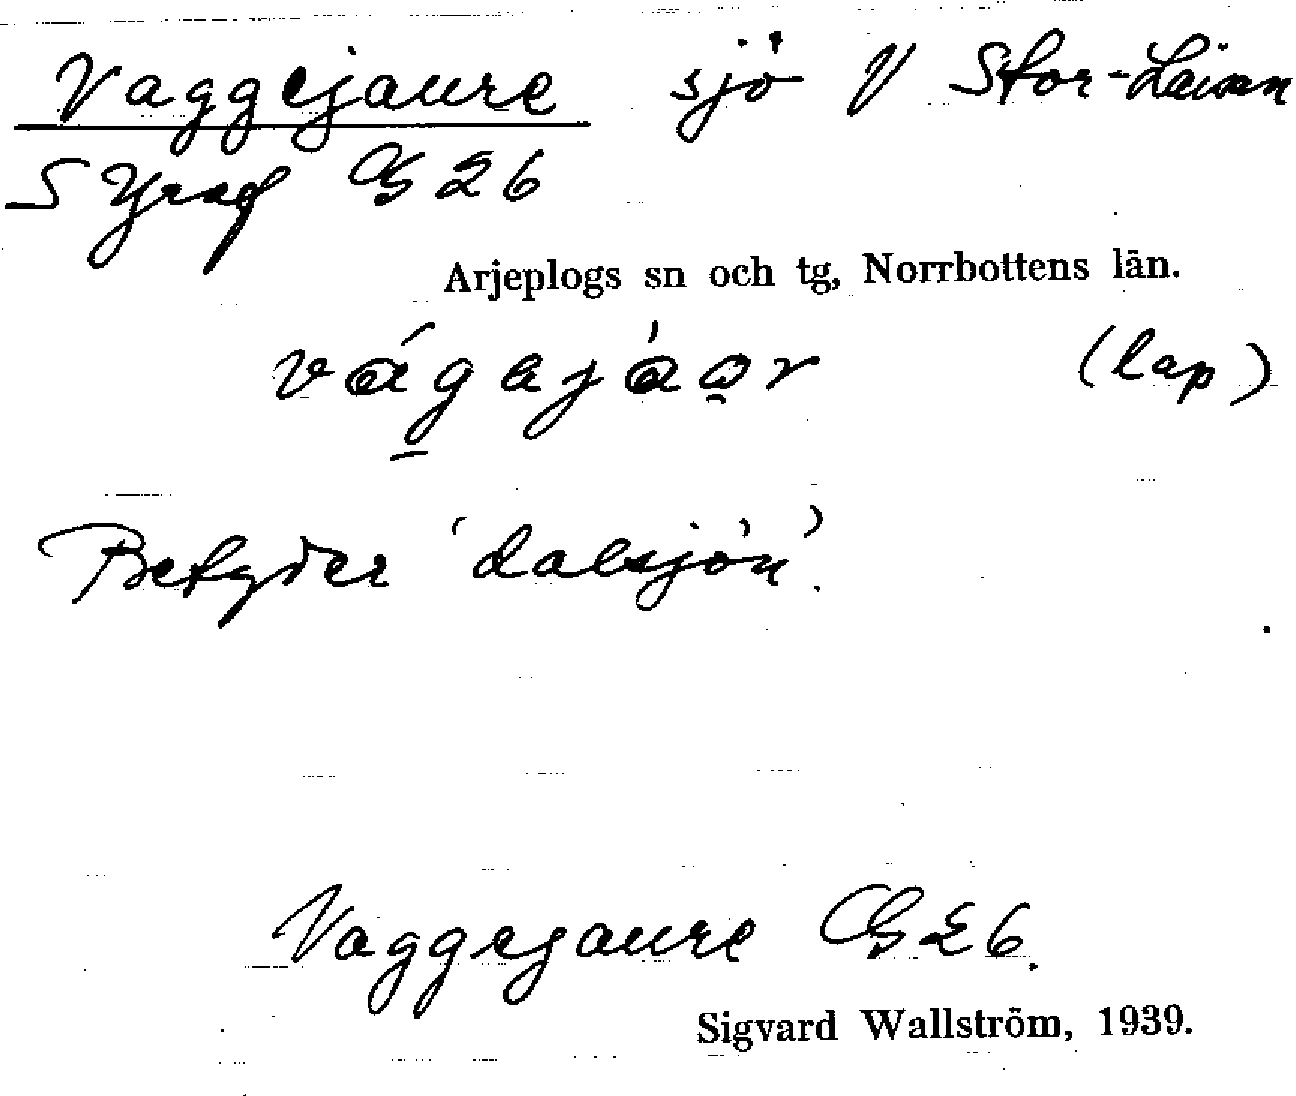 Vaggejaure sjö V Stor-Laisan
S Yraf G 26
Arjeplogs sn och tg, Norrbottens län.
(lap)
Betyder 'dalsjön'.
Vaggejaure G 26.
Sigvard Wallström, 1939.